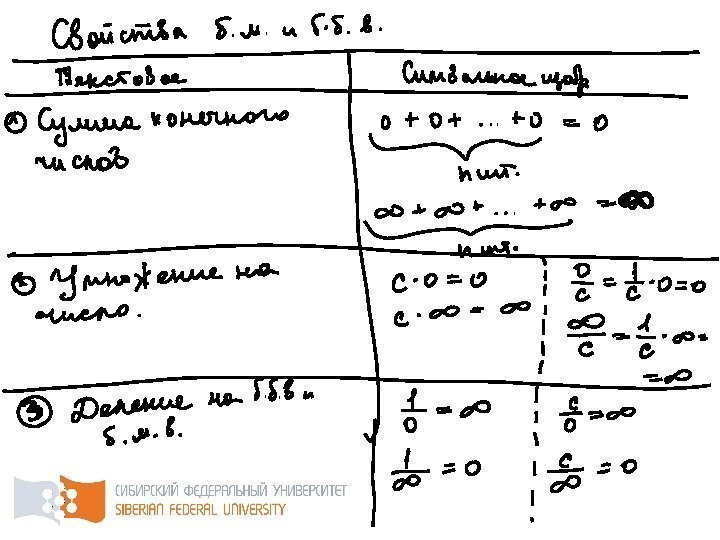 Свойства б.м. и б.б.в.
Текстовое Символьное
① Сумма конечного
числа
0 + 0 + ... + 0 = 0
n шт.
∞ + ∞ + ... + ∞ = ∞
n шт.
② Умножение на
число.
c · 0 = 0
c · ∞ = ∞
0/c = 1/c · 0 = 0
∞/c = 1/c · ∞ =
= ∞
③ Деление на б.б.в и
б.м.в.
1/0 = ∞ c/0 = ∞
1/∞ = 0 c/∞ = 0
СИБИРСКИЙ ФЕДЕРАЛЬНЫЙ УНИВЕРСИТЕТ
SIBERIAN FEDERAL UNIVERSITY